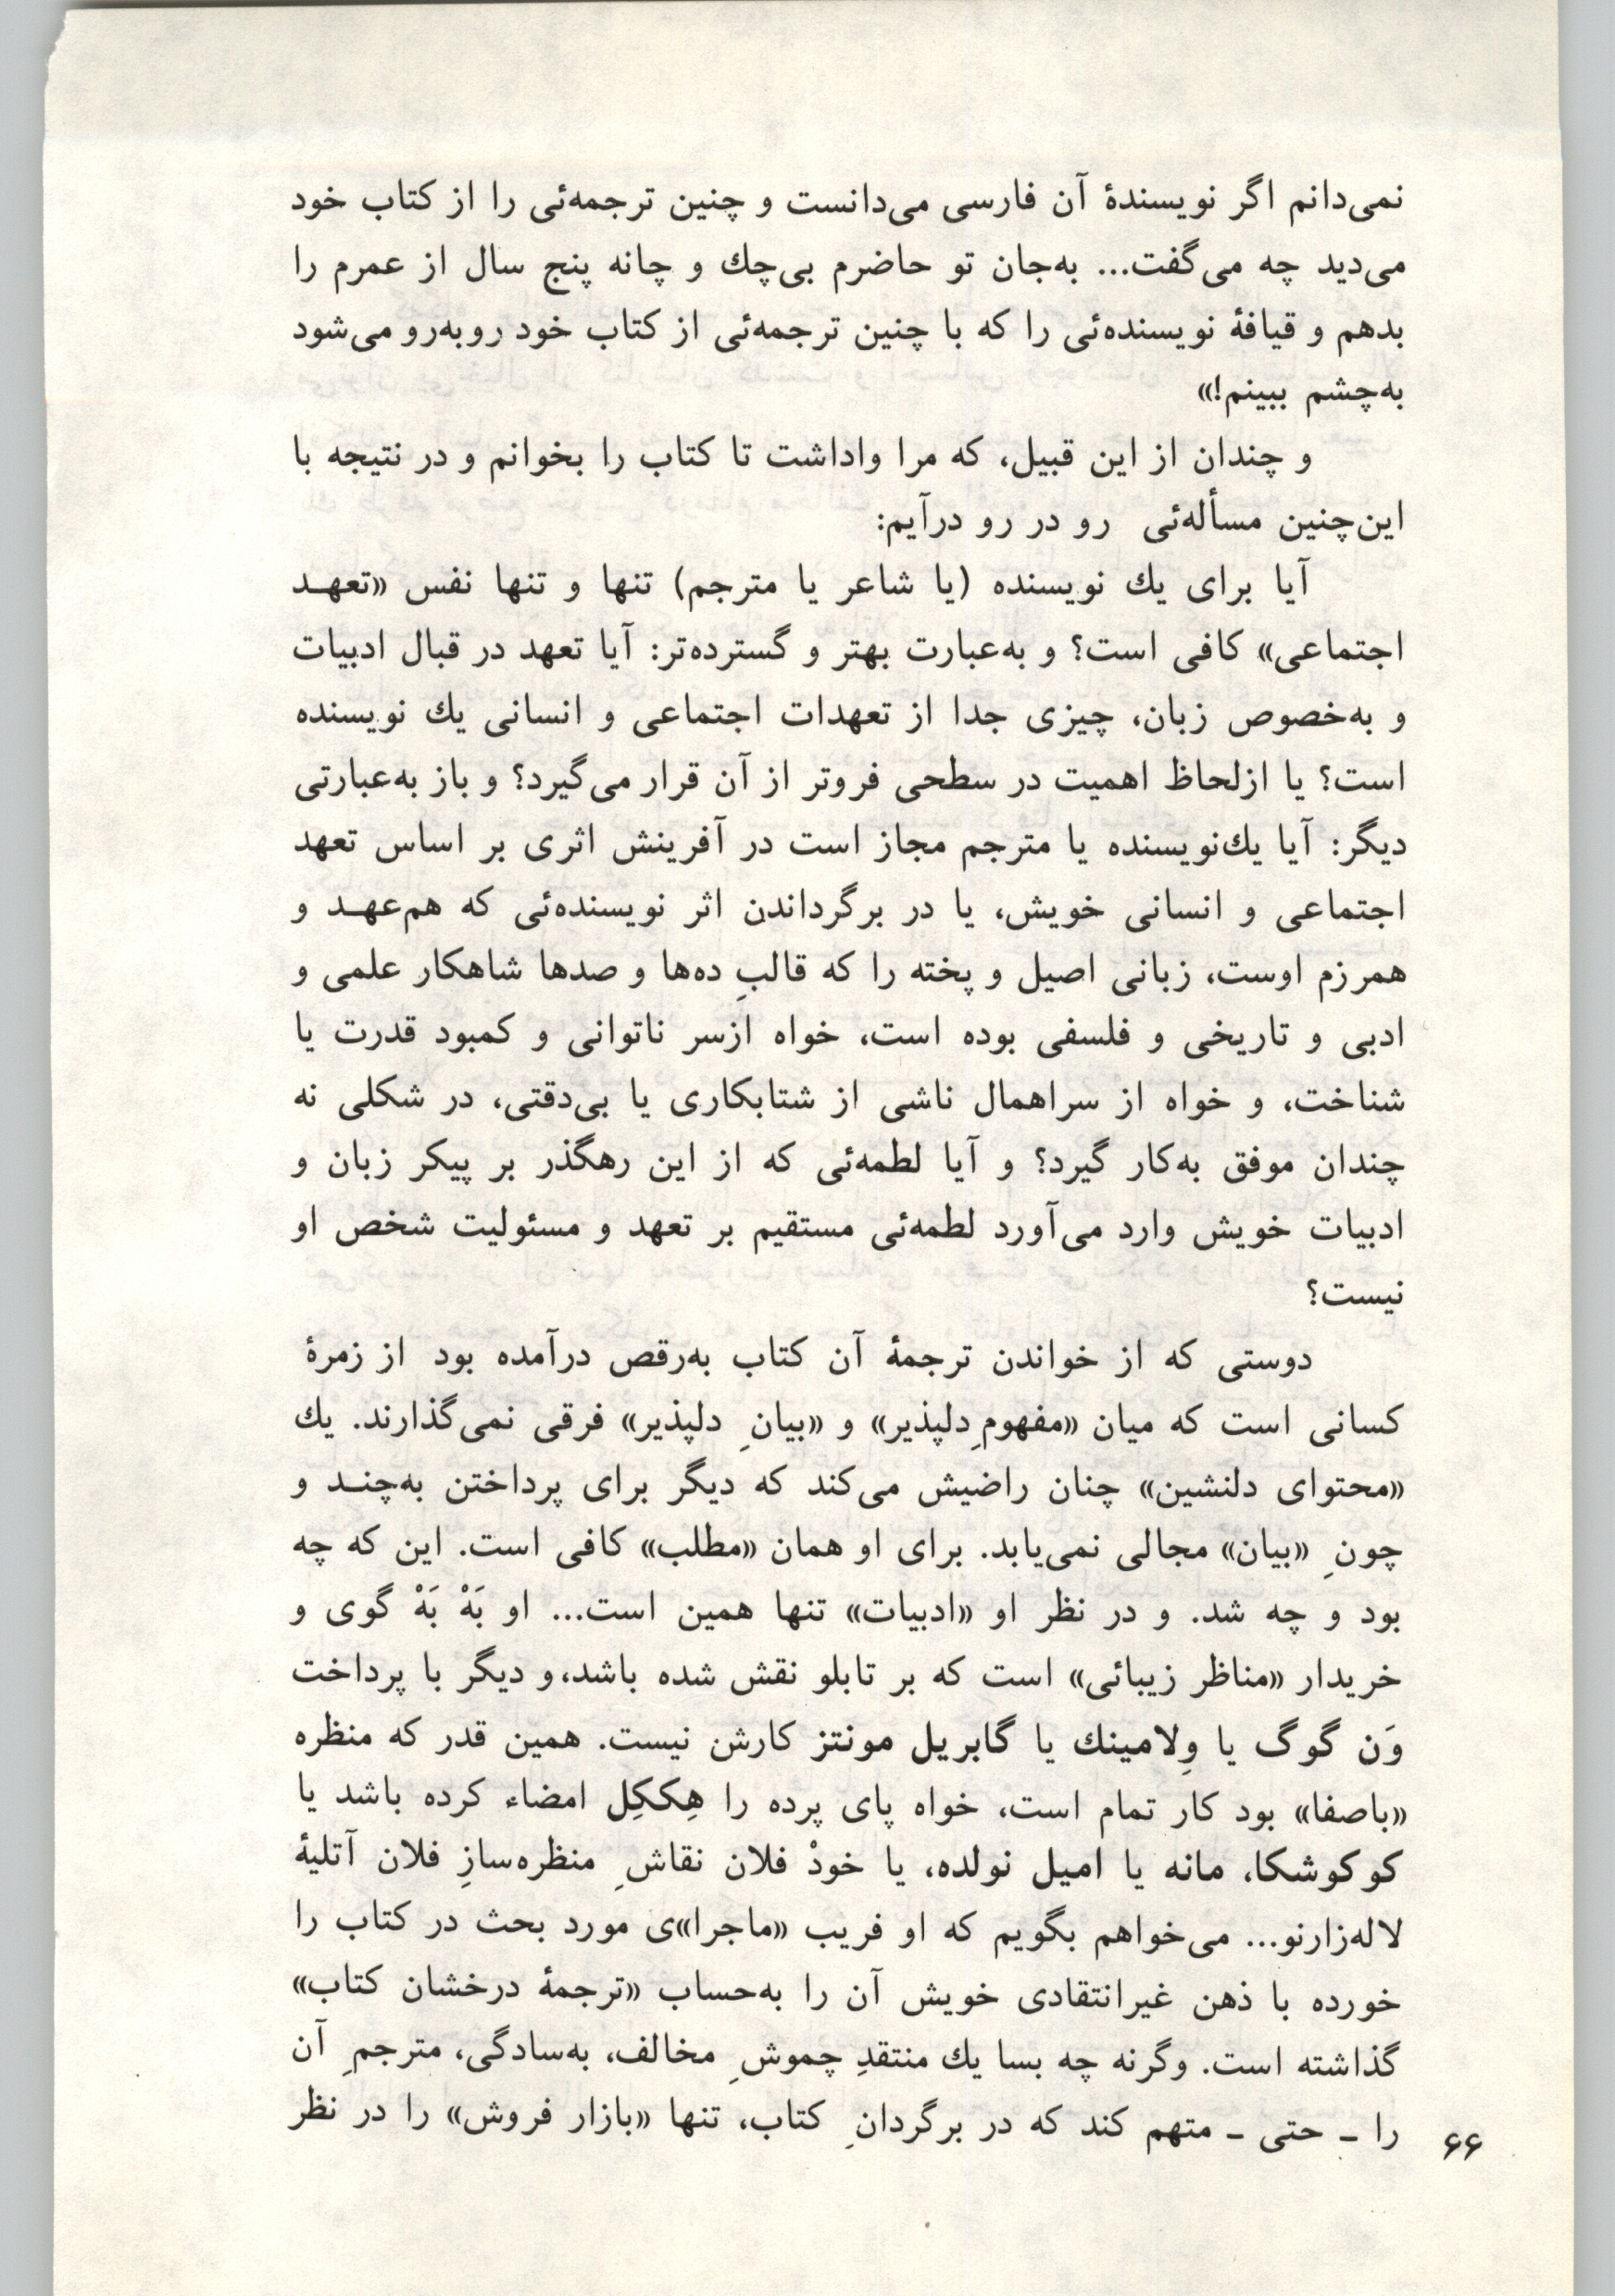 نمی‌دانم اگر نویسندهٔ آن فارسی می‌دانست و چنین ترجمه‌ئی را از کتاب خود
می‌دید چه می‌گفت... به‌جان تو حاضرم بی‌چك و چانه پنج سال از عمرم را
بدهم و قیافهٔ نویسنده‌ئی را که با چنین ترجمه‌ئی از کتاب خود روبه‌رو می‌شود
به‌چشم ببینم!»
و چندان از این قبیل، که مرا واداشت تا کتاب را بخوانم و در نتیجه با
این‌چنین مسأله‌ئی رو در رو درآیم:
آیا برای یك نویسنده (یا شاعر یا مترجم) تنها و تنها نفس «تعهـد
اجتماعی» کافی است؟ و به‌عبارت بهتر و گسترده‌تر: آیا تعهد در قبال ادبیات
و به‌خصوص زبان، چیزی جدا از تعهدات اجتماعی و انسانی یك نویسنده
است؟ یا ازلحاظ اهمیت در سطحی فروتر از آن قرار می‌گیرد؟ و باز به‌عبارتی
دیگر: آیا یك‌نویسنده یا مترجم مجاز است در آفرینش اثری بر اساس تعهد
اجتماعی و انسانی خویش، یا در برگرداندن اثر نویسنده‌ئی که هم‌عهـد و
همرزم اوست، زبانی اصیل و پخته را که قالبِ ده‌ها و صدها شاهکار علمی و
ادبی و تاریخی و فلسفی بوده است، خواه ازسر ناتوانی و کمبود قدرت یا
شناخت، و خواه از سراهمال ناشی از شتابکاری یا بی‌دقتی، در شکلی نه
چندان موفق به‌کار گیرد؟ و آیا لطمه‌ئی که از این رهگذر بر پیکر زبان و
ادبیات خویش وارد می‌آورد لطمه‌ئی مستقیم بر تعهد و مسئولیت شخص او
نیست؟
دوستی که از خواندن ترجمهٔ آن کتاب به‌رقص درآمده بود از زمرهٔ
کسانی است که میان «مفهومِ دلپذیر» و «بیانِ دلپذیر» فرقی نمی‌گذارند. یك
«محتوای دلنشین» چنان راضیش می‌کند که دیگر برای پرداختن به‌چنـد و
چونِ «بیان» مجالی نمی‌یابد. برای او همان «مطلب» کافی است. این که چه
بود و چه شد. و در نظر او «ادبیات» تنها همین است... او بَهْ بَهْ گوی و
خریدار «مناظر زیبائی» است که بر تابلو نقش شده باشد، و دیگر با پرداخت
وَن گوگ یا وِلامینك یا گابریل مونتز کارش نیست. همین قدر که منظره
«باصفا» بود کار تمام است، خواه پای پرده را هِککِل امضاء کرده باشد یا
کوکوشکا، مانه یا امیل نولده، یا خودْ فلان نقاشِ منظره‌سازِ فلان آتلیهٔ
لاله‌زارنو... می‌خواهم بگویم که او فریب «ماجرا»ی مورد بحث در کتاب را
خورده با ذهن غیرانتقادی خویش آن را به‌حساب «ترجمهٔ درخشان کتاب»
گذاشته است. وگرنه چه بسا یك منتقدِ چموشِ مخالف، به‌سادگی، مترجمِ آن
را ـ حتی ـ متهم کند که در برگردانِ کتاب، تنها «بازار فروش» را در نظر
۶۶